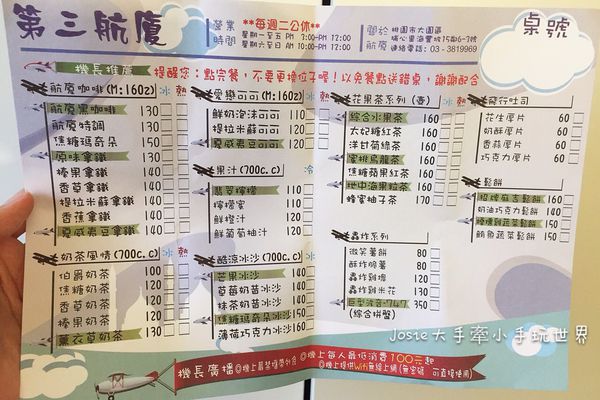 第三航廈
營業時間
**每週二公休**
星期一至五 PM 7:00-PM 12:00
星期六至日 AM 10:00-PM 12:00
關於航廈
桃園市大園區
埔心里海豐坡15鄰6-7號
連絡電話:03-3819969
桌號
機長推薦
提醒您:點完餐,不要更換位子喔!以免餐點送錯桌,謝謝配合
航廈咖啡(M:16oz) 冰 熱
航廈黑咖啡 130
航廈特調 130
焦糖瑪奇朵 150
原味拿鐵 130
榛果拿鐵 140
香草拿鐵 140
提拉米蘇拿鐵 140
香蕉拿鐵 140
夏威夷豆拿鐵 140
奶茶風情(700c.c) 冰 熱
伯爵奶茶 100
焦糖奶茶 120
香草奶茶 120
榛果奶茶 120
薰衣草奶茶 130
愛戀可可(M:16oz) 冰 熱
鮮奶泡沫可可 110
提拉米蘇可可 120
夏威夷豆可可 120
果汁(700c.c) 冷
翡翠檸檬 110
檸檬蜜 110
鮮橙汁 120
鮮葡萄柚汁 120
酷涼冰沙(700c.c)
芒果冰沙 140
草莓奶昔冰沙 140
抹茶奶昔冰沙 140
焦糖瑪奇朵冰沙 150
薄荷巧克力冰沙 160
花果茶系列(壺) 冰 熱
綜合水果茶 160
大吃糖紅茶 160
洋甘菊綠茶 160
蜜桃烏龍茶 160
焦糖蘋果紅茶 160
地中海果粒茶 160
蜂蜜柚子茶 170
轟炸系列
微笑薯餅 80
酥炸脆薯 80
轟炸雞塊 120
轟炸雞米花 130
巨型波音-747 350
(綜合拼盤)
飛行吐司
花生厚片 60
奶酥厚片 60
香蒜厚片 60
巧克力厚片 60
鬆餅
招牌麻吉鬆餅 160
奶油巧克力鬆餅 140
燻雞蔬菜鬆餅 150
鮪魚蔬菜鬆餅 150
Josie大手牽小手玩世界
機長廣播
◎機上最茶禁帶外食
◎機上每人最低消費100元起
◎機上提供Wifi無線上網(無密碼 可直接使用)